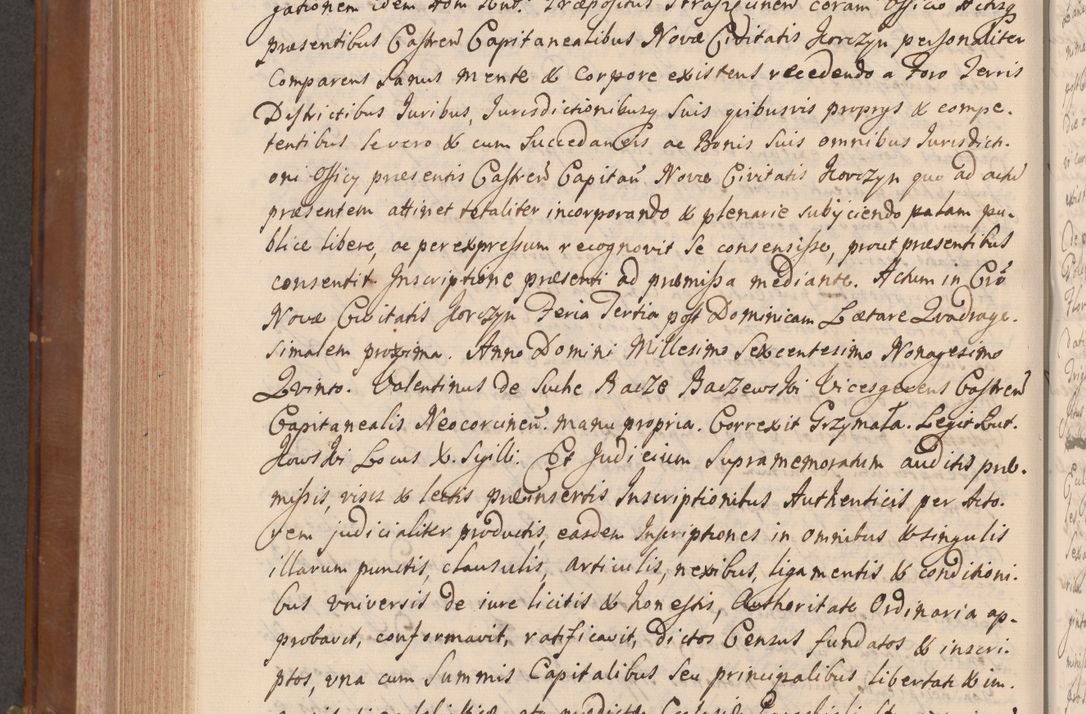 gationem idem Adm. Præpositus coram Officio
præsentibus Castreñ Capitanealibus Novæ Civitatis Korczyn personaliter
Comparens Sanus mente & corpore existens recedendo a Foro Terris
Districtibus Iuribus, Iurisdictionibusq suis quibusvis proprys & compe-
tentibus se vero & cum Succedaneis ac Bonis suis omnibus Iurisdicti-
oni Officy præsentis Castreñ Capitañ Novæ Civitatis Korczyn quo ad actũ
præsentem attinet totaliter incorporando & plenarie subijciendo palam pu-
blice libere, ac per expressum recognovit se consensisse, prout præsentibus
consentit Inscriptione præsenti ad præmissa mediante. Actum in Crõ
Novæ Civitatis Korczyn Feria Tertia post Dominicam Lætare Qvadrage-
simalem proxima. Anno Domini Millesimo Sexcentesimo Nonagesimo
Qvinto. Valentinus de Suche Bacze Baczewski Vicesgerens Castreñ
Capitanealis Neocorcineñ. manu propria. Correxit Grzymała. Legit Rut-
kowski Locus X. Sigilli. Et Judicium Supramemoratum auditis præ-
missis, visis & lectis præinsertis Inscriptionibus Authenticis per Acto-
rem judicialiter productis, easdem Inscriptiones in omnibus & singulis
illarum punctis, clausulis, articulis, nexibus, ligamentis & conditioni-
bus vniversis de iure licitis & honestis, Authoritate Ordinaria ap-
probavit, conformavit, ratificavit, dictos Census fundatos & inscri-
ptos, vna cum Summis Capitalibus seu principalibus libertate & im-